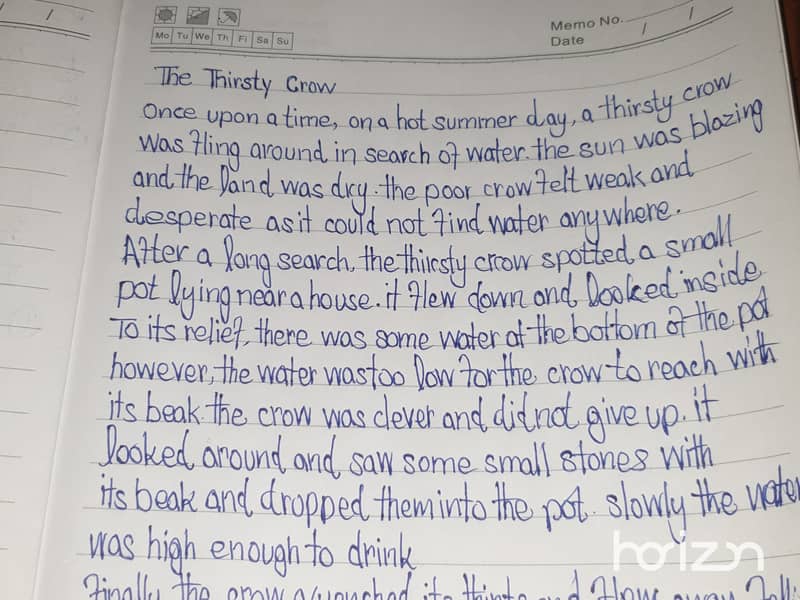 Memo No.
Date / /
Mo Tu We Th Fi Sa Su
The Thirsty Crow
Once upon a time, on a hot summer day, a thirsty crow
was fling around in search of water. the sun was blazing
and the land was dry. the poor crow felt weak and
desperate as it could not find water anywhere.
After a long search, the thircsty crow spotted a small
pot lying near a house. it flew down and looked inside
To its relief, there was some water at the bottom of the pot
however, the water was too low for the crow to reach with
its beak the crow was clever and did not give up. it
looked around and saw some small stones with
its beak and dropped them into the pot. slowly the water
was high enough to drink
Finally the crow its and flew away
horizon